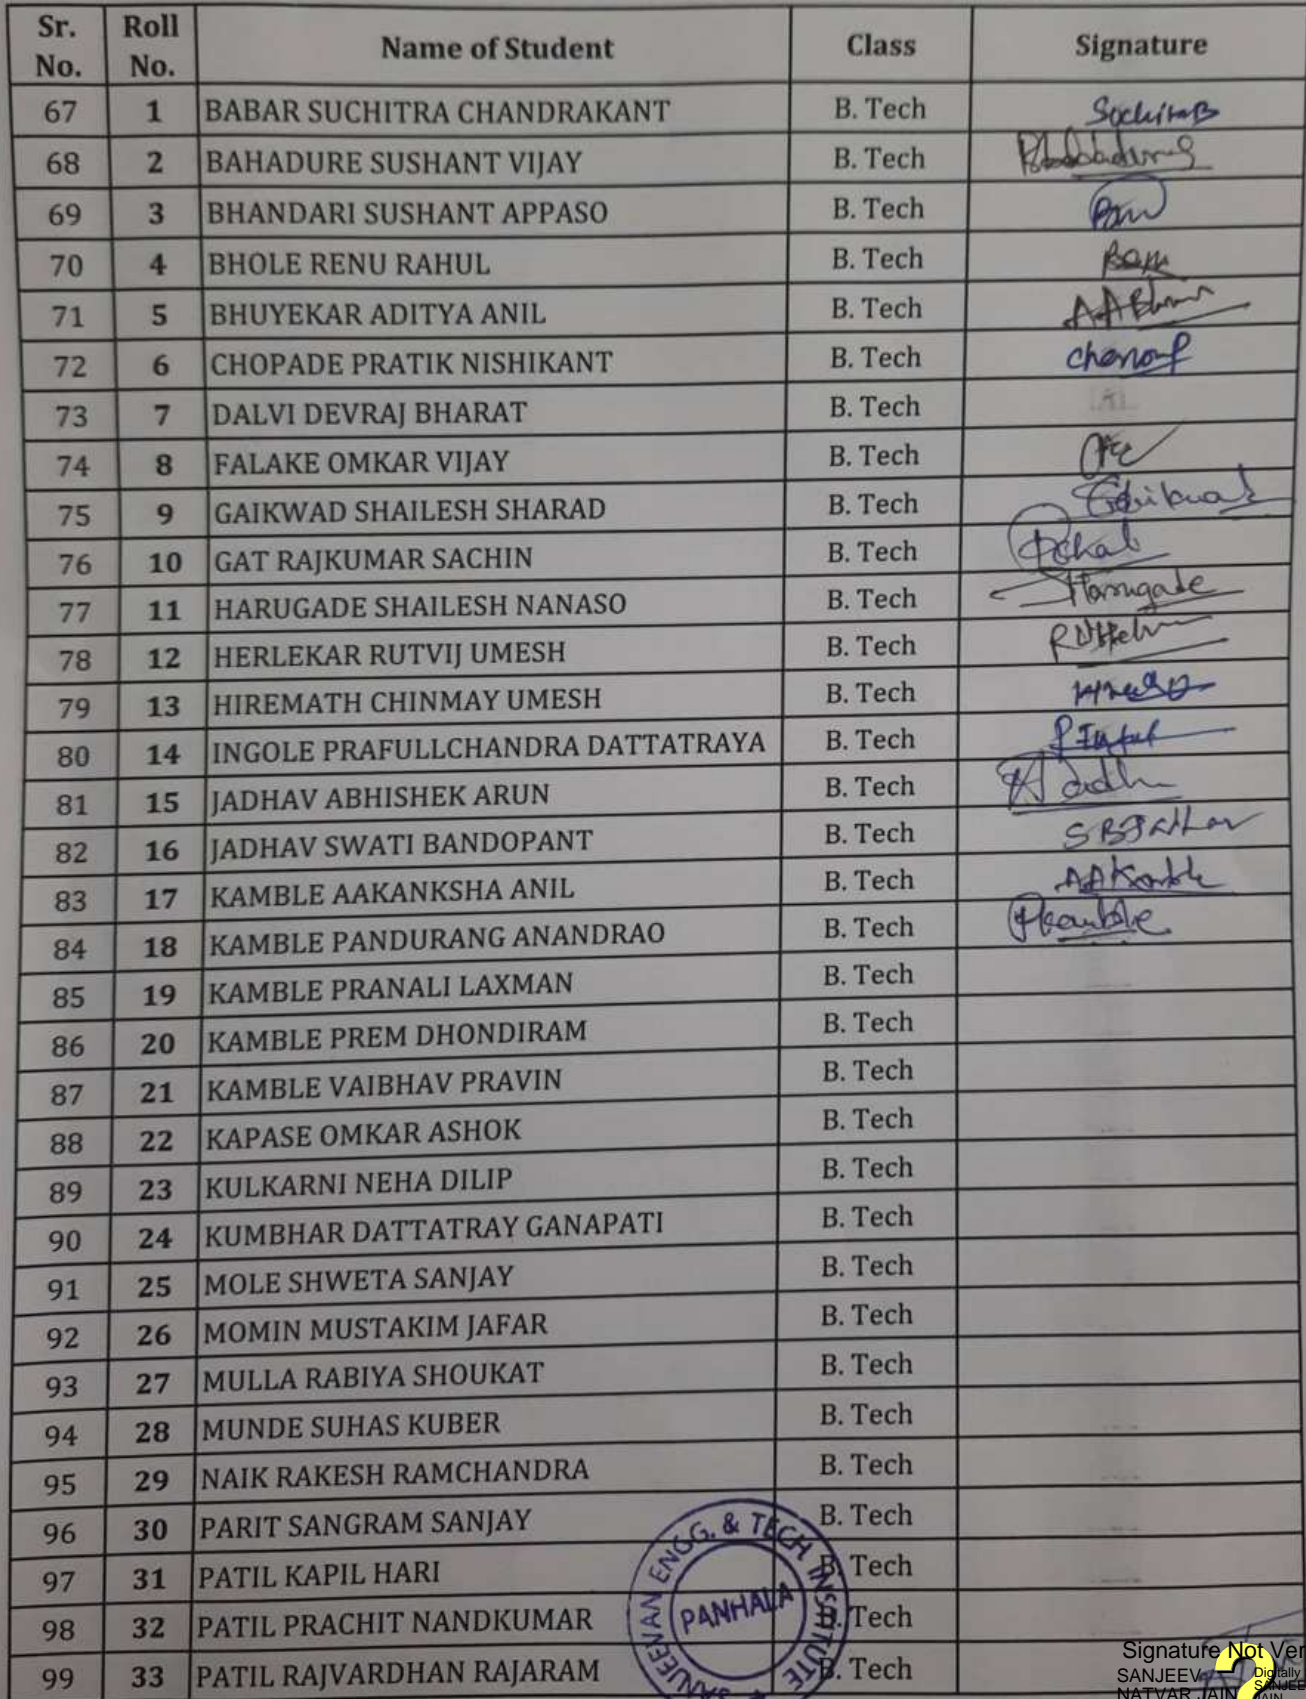 Sr. No. Roll No. Name of Student Class Signature
67 1 BABAR SUCHITRA CHANDRAKANT B. Tech
68 2 BAHADURE SUSHANT VIJAY B. Tech
69 3 BHANDARI SUSHANT APPASO B. Tech
70 4 BHOLE RENU RAHUL B. Tech
71 5 BHUYEKAR ADITYA ANIL B. Tech
72 6 CHOPADE PRATIK NISHIKANT B. Tech
73 7 DALVI DEVRAJ BHARAT B. Tech
74 8 FALAKE OMKAR VIJAY B. Tech
75 9 GAIKWAD SHAILESH SHARAD B. Tech Gaikwad
76 10 GAT RAJKUMAR SACHIN B. Tech
77 11 HARUGADE SHAILESH NANASO B. Tech Harugade
78 12 HERLEKAR RUTVIJ UMESH B. Tech
79 13 HIREMATH CHINMAY UMESH B. Tech
80 14 INGOLE PRAFULLCHANDRA DATTATRAYA B. Tech
81 15 JADHAV ABHISHEK ARUN B. Tech
82 16 JADHAV SWATI BANDOPANT B. Tech
83 17 KAMBLE AAKANKSHA ANIL B. Tech AAKamble
84 18 KAMBLE PANDURANG ANANDRAO B. Tech PKamble
85 19 KAMBLE PRANALI LAXMAN B. Tech
86 20 KAMBLE PREM DHONDIRAM B. Tech
87 21 KAMBLE VAIBHAV PRAVIN B. Tech
88 22 KAPASE OMKAR ASHOK B. Tech
89 23 KULKARNI NEHA DILIP B. Tech
90 24 KUMBHAR DATTATRAY GANAPATI B. Tech
91 25 MOLE SHWETA SANJAY B. Tech
92 26 MOMIN MUSTAKIM JAFAR B. Tech
93 27 MULLA RABIYA SHOUKAT B. Tech
94 28 MUNDE SUHAS KUBER B. Tech
95 29 NAIK RAKESH RAMCHANDRA B. Tech
96 30 PARIT SANGRAM SANJAY B. Tech
97 31 PATIL KAPIL HARI B. Tech
98 32 PATIL PRACHIT NANDKUMAR B. Tech
99 33 PATIL RAJVARDHAN RAJARAM B. Tech
SANJEEVAN ENGG. & TECH INSTITUTE
PANHALA
Signature Not Ver
SANJEEV
NATVAR JAIN
Digitally
SANJEE
JAIN